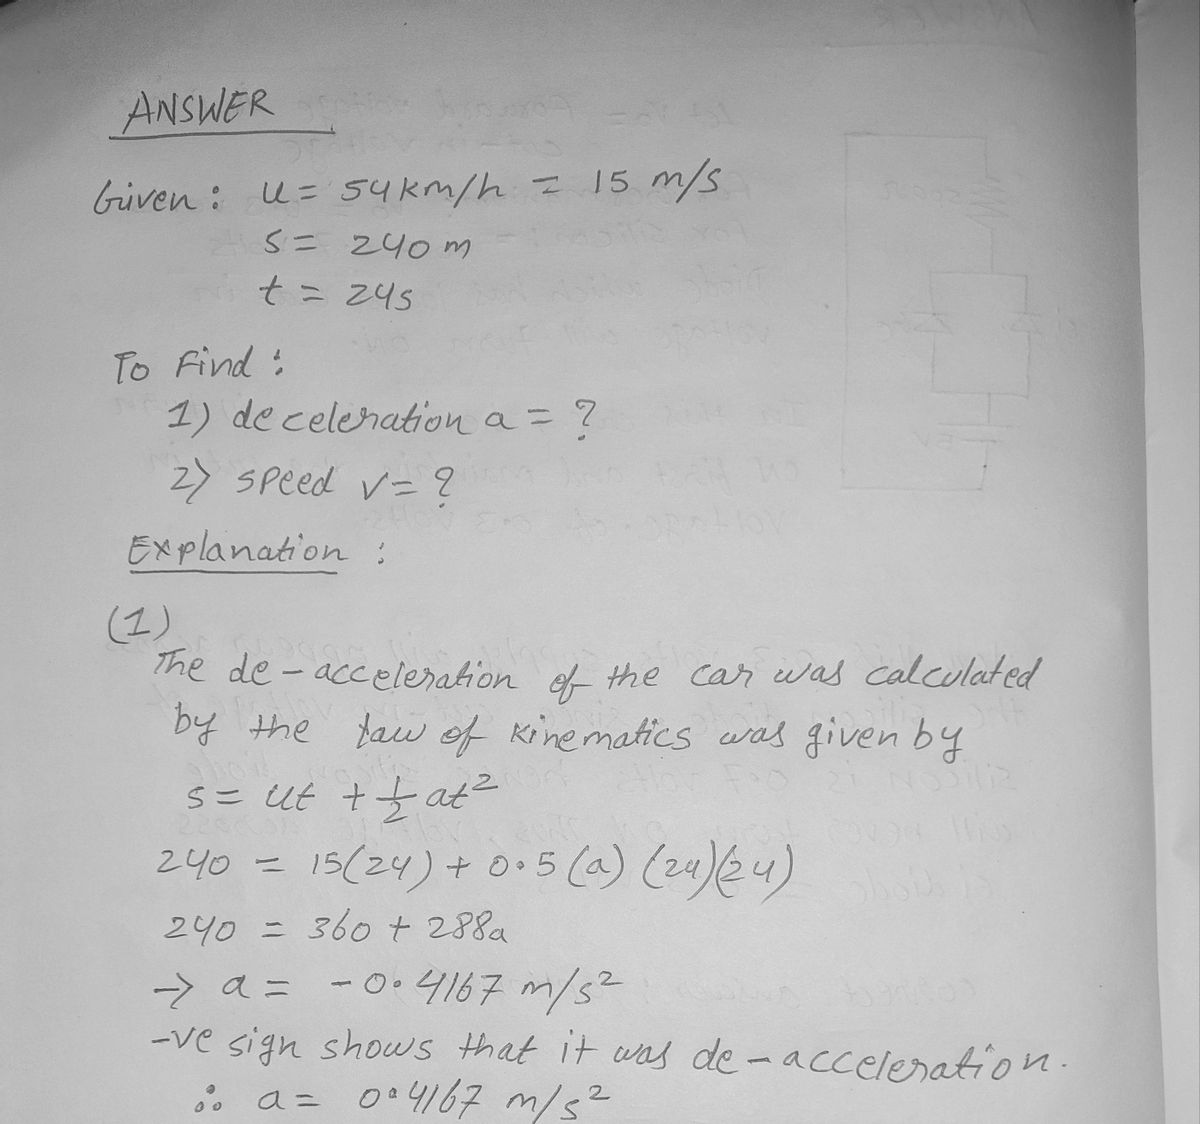 ANSWER
Given: u = 54 km/h = 15 m/s
s = 240 m
t = 24s
To Find:
1) deceleration a = ?
2) speed v = ?
Explanation:
(1)
The de-acceleration of the car was calculated
by the law of kinematics was given by
s = ut + 1/2 at²
240 = 15(24) + 0.5 (a) (24)(24)
240 = 360 + 288a
→ a = -0.4167 m/s²
-ve sign shows that it was de-acceleration.
∴ a = 0.4167 m/s²